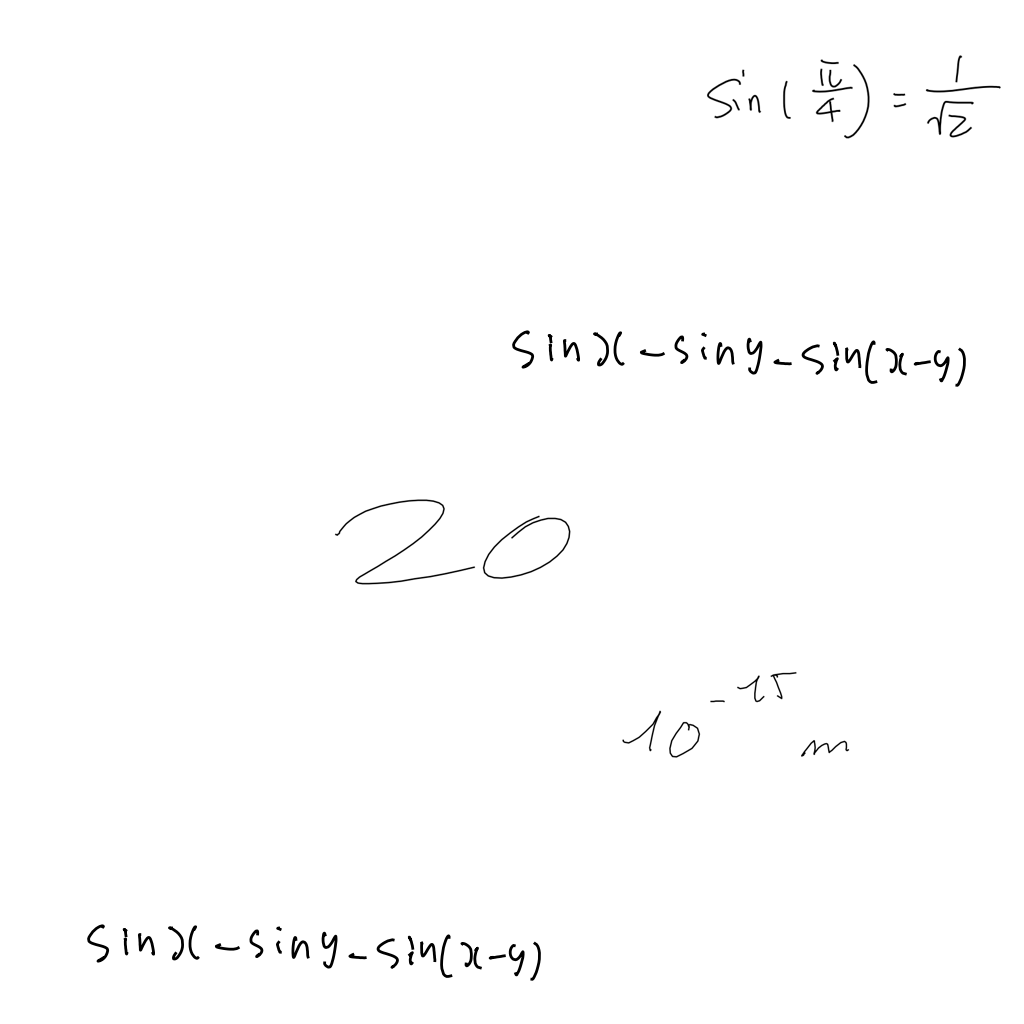 sin(π/4) = 1/√2
sin x - sin y - sin(x-y)
20
10^-15 m
sin x - sin y - sin(x-y)